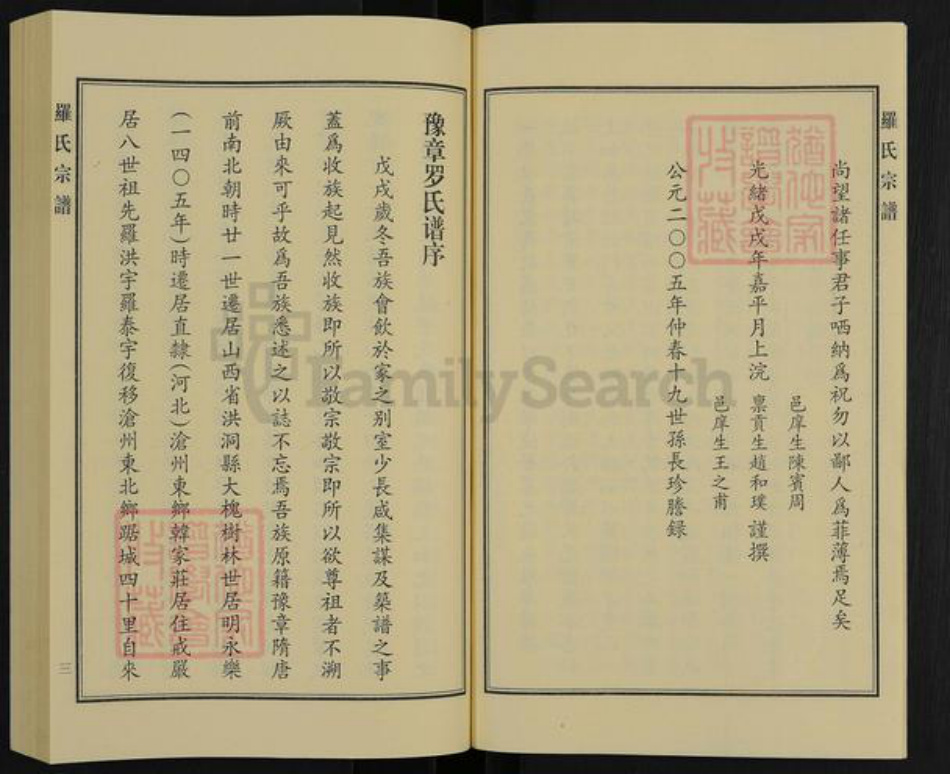 羅氏宗譜
尚望諸任事君子哂納為祝勿以鄙人為菲薄焉足矣
邑庠生陳賓周
光緒戊戌年嘉平月上浣 禀貢生趙和璞 謹撰
邑庠生王之甫
公元二〇〇五年仲春十九世孫長珍謄録
豫章罗氏谱序
戊戌歲冬吾族會飲於家之别室少長咸集謀及築譜之事
蓋爲收族起見然收族即所以敬宗敬宗即所以欲尊祖者不溯
厥由來可乎故爲吾族悉述之以誌不忘焉吾族原籍豫章隋唐
前南北朝時廿一世遷居山西省洪洞縣大槐樹林世居明永樂
(一四〇五年)時遷居直隸(河北)滄州東鄉韓家莊居住戒嚴
居八世祖先羅洪宇羅泰宇復移滄州東北鄉踞城四十里自來
羅氏宗譜
三
FamilySearch